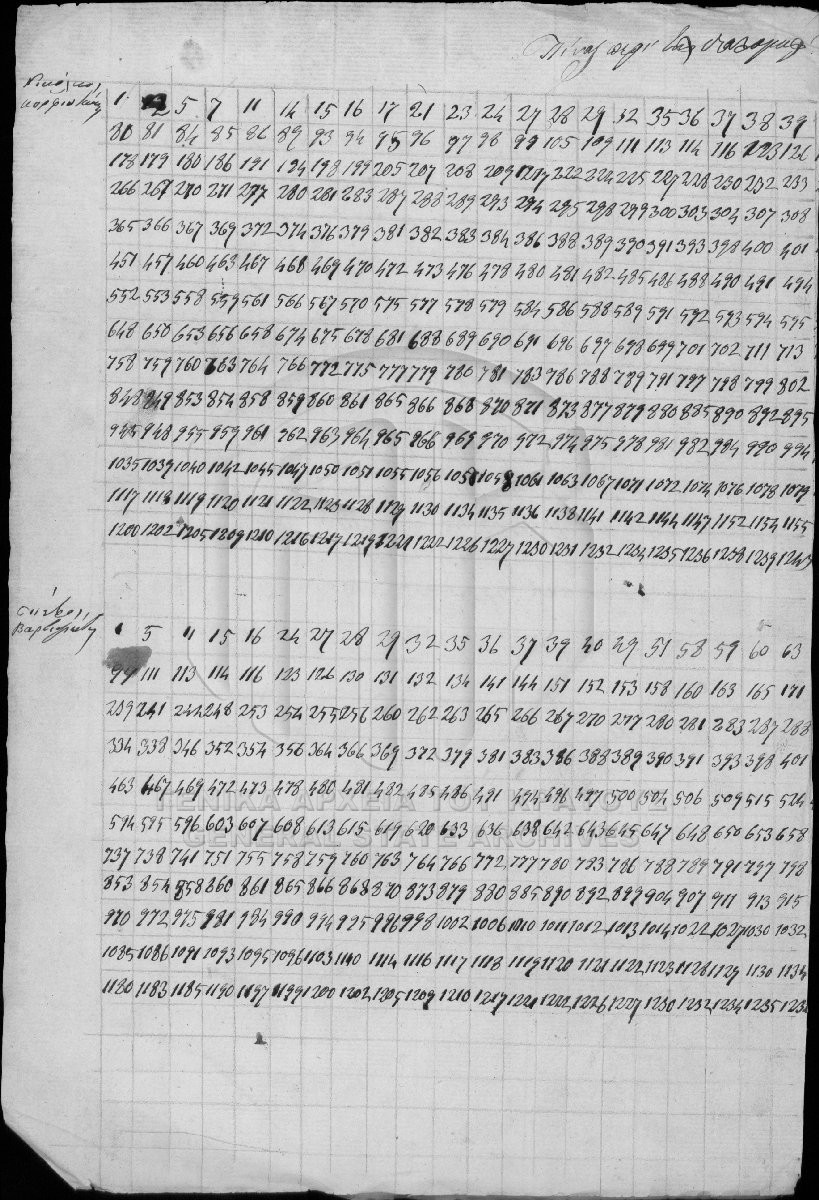 Πίναξ περὶ
Νικόλαος
1 2 5 7 11 14 15 16 17 21 23 24 27 28 29 32 35 36 37 38 39
80 81 84 85 86 89 93 94 95 96 97 98 99 105 109 111 113 114 116 123 126
178 179 180 186 191 194 198 199 205 207 208 209 217 222 224 225 227 228 230 232 233
266 267 270 271 277 280 281 283 287 288 289 293 294 295 298 299 300 303 304 307 308
365 366 367 369 372 374 376 379 381 382 383 384 386 388 389 390 391 393 398 400 401
451 457 460 463 467 468 469 470 472 473 476 478 480 481 482 485 486 488 490 491 494
552 553 558 559 561 566 567 570 575 577 578 579 584 586 588 589 591 592 593 594 595
648 650 653 656 658 674 675 678 681 688 689 690 691 696 697 698 699 701 702 711 713
758 759 760 763 764 766 772 775 777 779 780 781 783 786 788 789 791 797 798 799 802
848 849 853 854 858 859 860 861 865 866 868 870 871 873 877 879 880 885 890 892 895
945 948 955 959 961 962 963 964 965 966 969 970 972 974 975 978 981 982 984 990 994
1035 1039 1040 1042 1045 1047 1050 1051 1055 1056 1057 1058 1061 1063 1067 1071 1072 1074 1076 1078 1079
1117 1118 1119 1120 1121 1122 1123 1128 1129 1130 1134 1135 1136 1138 1141 1142 1144 1147 1152 1154 1155
1200 1202 1205 1209 1210 1216 1217 1219 1221 1222 1226 1227 1230 1231 1232 1234 1235 1236 1238 1239 1243
1 5 11 15 16 24 27 28 29 32 35 36 37 39 40 49 51 58 59 60 63
99 111 113 114 116 123 126 130 131 132 134 141 144 151 152 153 158 160 163 165 171
239 241 244 248 253 254 255 256 260 262 263 265 266 267 270 277 280 281 283 287 288
334 338 346 352 354 356 364 366 369 372 379 381 383 386 388 389 390 391 393 398 401
463 467 469 472 473 478 480 481 482 485 486 491 494 496 497 500 504 506 509 515 524
ΓΕΝΙΚΑ ΑΡΧΕΙΑ ΤΟΥ ΚΡΑΤΟΥΣ
594 595 596 603 607 608 613 615 619 620 633 636 638 642 643 645 647 648 650 653 658
GENERAL STATE ARCHIVES
737 738 741 751 755 758 759 760 763 764 766 772 777 780 783 786 788 789 791 797 798
853 854 858 860 861 865 866 868 870 873 879 880 885 890 892 899 904 907 911 913 915
970 972 975 981 984 990 994 995 996 998 1002 1006 1010 1011 1012 1013 1014 1022 1027 1030 1032
1085 1086 1091 1093 1095 1096 1103 1110 1114 1116 1117 1118 1119 1120 1121 1122 1123 1128 1129 1130 1134
1180 1183 1185 1190 1197 1199 1200 1202 1205 1209 1210 1217 1221 1222 1226 1227 1230 1232 1234 1235 1236